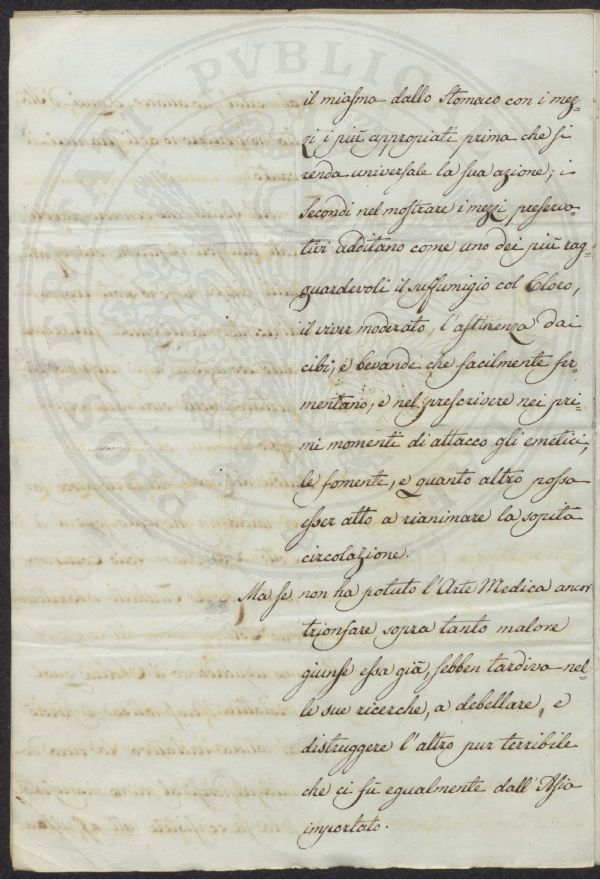 il miasma dallo Stomaco con i mez=
zi i più appropiati prima che si
renda universale la sua azione; i
Secondi nel mostrare i mezzi preserva=
tivi additano come uno dei più rag=
guardevoli il suffumigio col Cloro,
il viver moderato, l'astinenza dai
cibi, e bevande che facilmente fer=
mentano, e nel prescrivere nei pri=
mi momenti di attacco gli emetici,
le fomente, e quanto altro possa
esser atto a rianimare la sopita
circolazione.
Ma se non ha potuto l'Arte Medica ancor
trionfare sopra tanto malore
giunse essa già, sebben tardiva nel=
le sue ricerche, a debellare, e
distruggere l'altro pur terribile
che ci fù egualmente dall'Asia
importato.